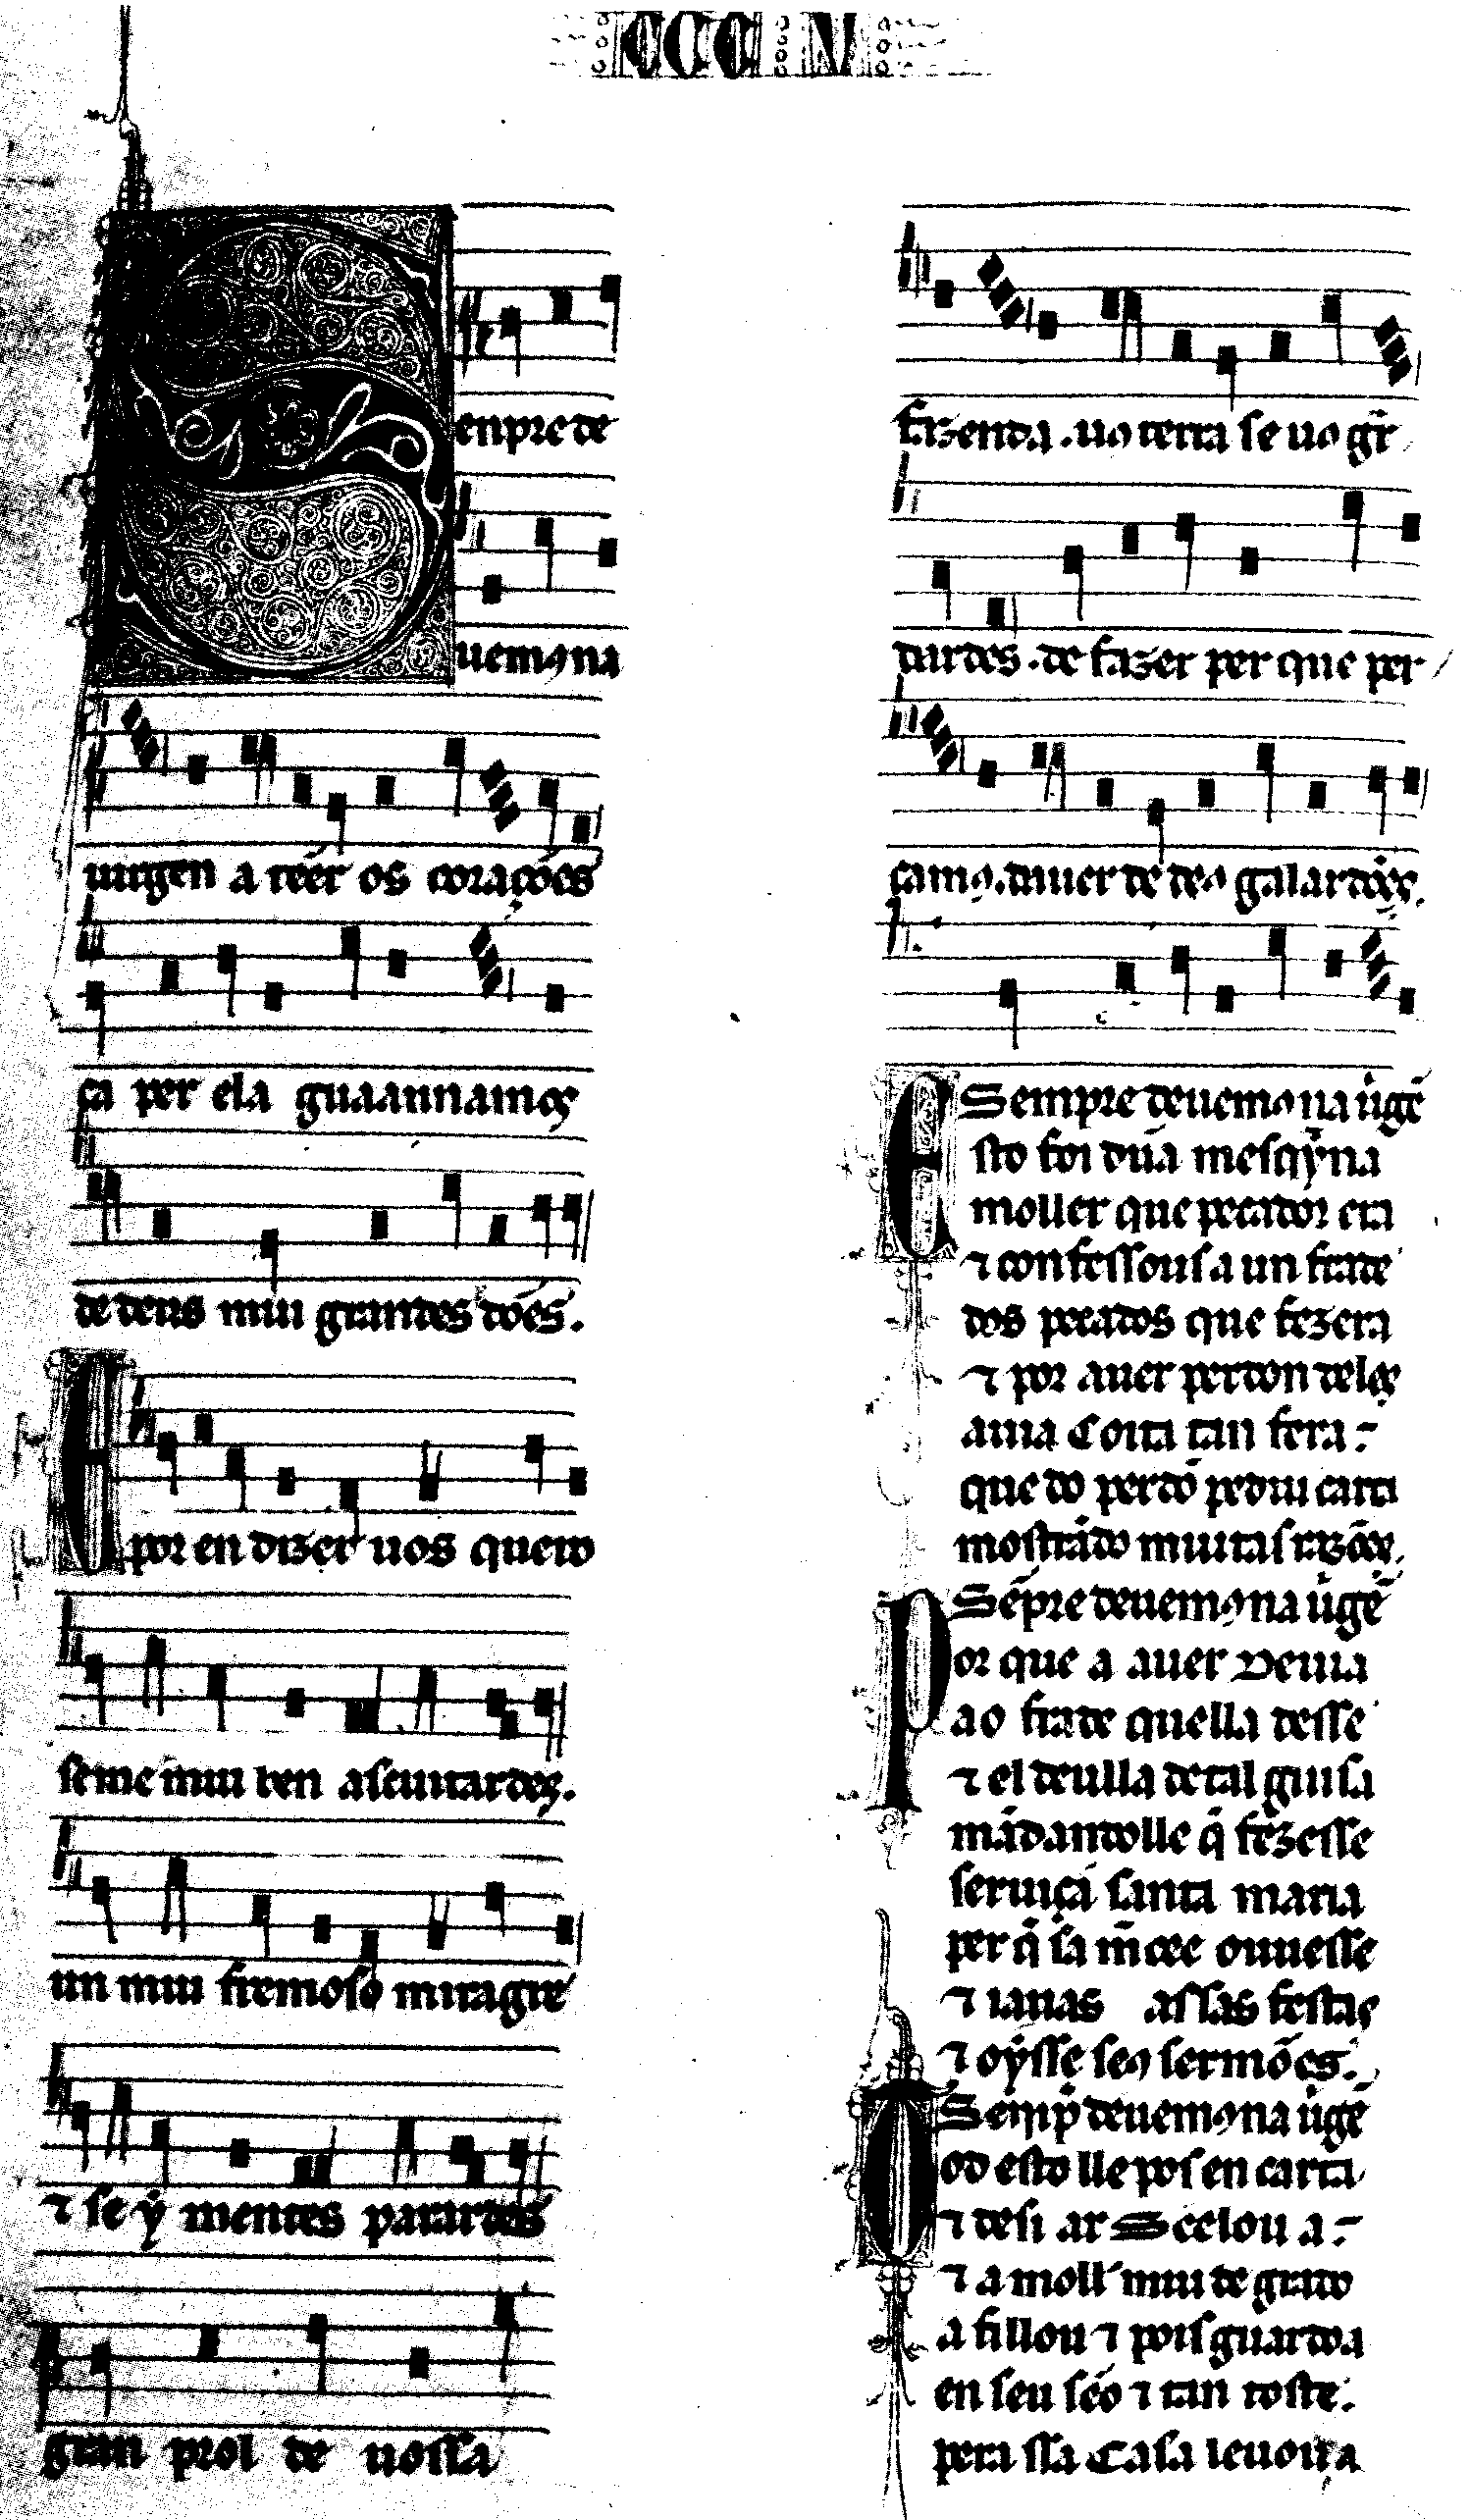 CCCV
Senpre de
uemos na
uirgen a teer os coraçoes
ca per ela guaannamos
de deus mui grandes does.
E por en dizer uos quero
se me mui ben ascuitardes.
un mui fremoso miragre
⁊ se y mentes parardes
gran prol de uossa
fazenda. uo terra se uo gr̃
dardes. de fazer per que per
çamos. dauer de deos galardões.
Sempre deuemos na uigẽ
Esto foi dũa mesqỹna
moller que pecador era
⁊ confessousa un frade
dos pecados que fezera
⁊ por auer perdon delos
auia Coita tan fera:
que do perdõ pediu carta
mostrãdo muitas razões.
Sẽpre deuemos na uigẽ
Por que a auer Deuia
ao frade quella desse
⁊ el deulla de tal guisa
mãdandolle q̃ fezesse
seruiça santa maria
per q̃ sa m̃cee ouuesse
⁊ iaiũas assas festas
⁊ oÿsse seos sermões.
Semp̃ deuemos na uigẽ
Tod esto lle pos en carta
⁊ desi ar Seelou a:
⁊ a moll' mui de grado
a fillou ⁊ pois guardoa
en seu sẽo ⁊ tan toste.
pera ssa Casa leuou a